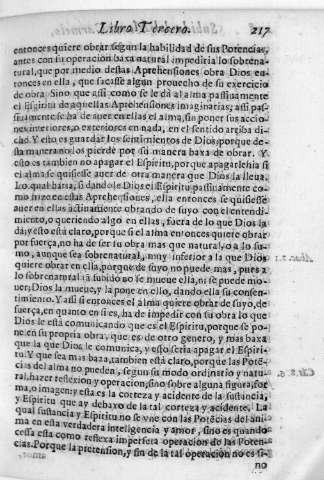 Libro Tercero. 217
entonces quiere obrar segun la habilidad de sus Potencias,
antes con su operacion baxa natural impediria lo sobrena-
tural, que por medio destas Aprehensiones obra Dios en-
tonces en ella, que sacasse algun prouecho de su exercicio
de obra. Sino que assi como se le dá al alma passiuamente
el Espiritu de aquellas Aprehensiones imaginarias; assi pas-
siuamente se ha de auer en ellas el alma, sin poner sus accio-
nes interiores, o exteriores en nada, en el sentido arriba di-
cho. Y esto es guardar los sentimientos de Dios, porque de-
sta manera no los pierde por su manera baxa de obrar. Y
esto es tambien no apagar el Espiritu, porque apagarlehia si
el alma se quisiesse auer de otra manera que Dios la lleua.
Lo qual haria, si dandole Dios el Espiritu passiuamente co-
mo haze en estas Aprehensiones, ella entonces se quisiesse
auer en ellas actiuamente obrando de suyo con el entendi-
miento, o queriendo algo en ellas, fuera de lo que Dios la
dá; y esto está claro, porque si el alma entonces quiere obrar
por fuerça, no ha de ser su obra mas que natural, o a lo su-
mo, aunque sea sobrenatural, muy inferior a la que Dios
quiere obrar en ella, porque de suyo no puede mas, pues a
lo sobrenatural tã subido no se mueue ella, ni se puede mo-
uer, Dios la mueue, y la pone en ello, dando ella su consen-
timiento. Y assi si entonces el alma quiere obrar de suyo, de
fuerça, en quanto en si es, ha de impedir con su obra lo que
Dios le está comunicando que es el Espiritu, porque se po-
ne en su propria obra, que es de otro genero, y mas baxa
que la que Dios le comunica, y esto seria apagar el Espiri-
tu. Y que sea mas baxa, tambien está claro, porque las Potẽ-
cias del alma no pueden, segun su modo ordinario y natu-
ral, hazer reflexion y operacion, sino sobre alguna figura, for
ma, o imagen; y esta es la corteza y accidente de la sustancia,
y Espiritu que ay debaxo de la tal corteza y accidente. La
qual sustancia y Espiritu no se vne con las Potẽcias del ani-
ma en esta verdadera inteligencia y amor, sino es quando
cessa esta como reflexa imperfeta operacion de las Poten-
cias. Porque la pretension, y fin de la tal operacion no es si-
no